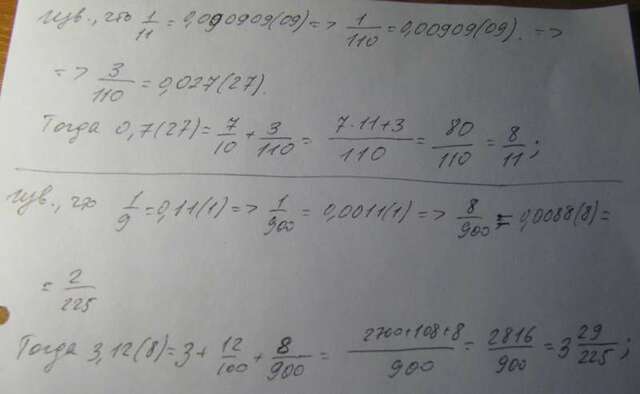 изв., что 1/11 = 0,090909(09) => 1/110 = 0,00909(09). =>
=> 3/110 = 0,027(27).
Тогда 0,7(27) = 7/10 + 3/110 = (7·11+3)/110 = 80/110 = 8/11;
изв., что 1/9 = 0,11(1) => 1/900 = 0,0011(1) => 8/900 = 0,0088(8) =
= 2/225
Тогда 3,12(8) = 3 + 12/100 + 8/900 = (2700+108+8)/900 = 2816/900 = 3 29/225;